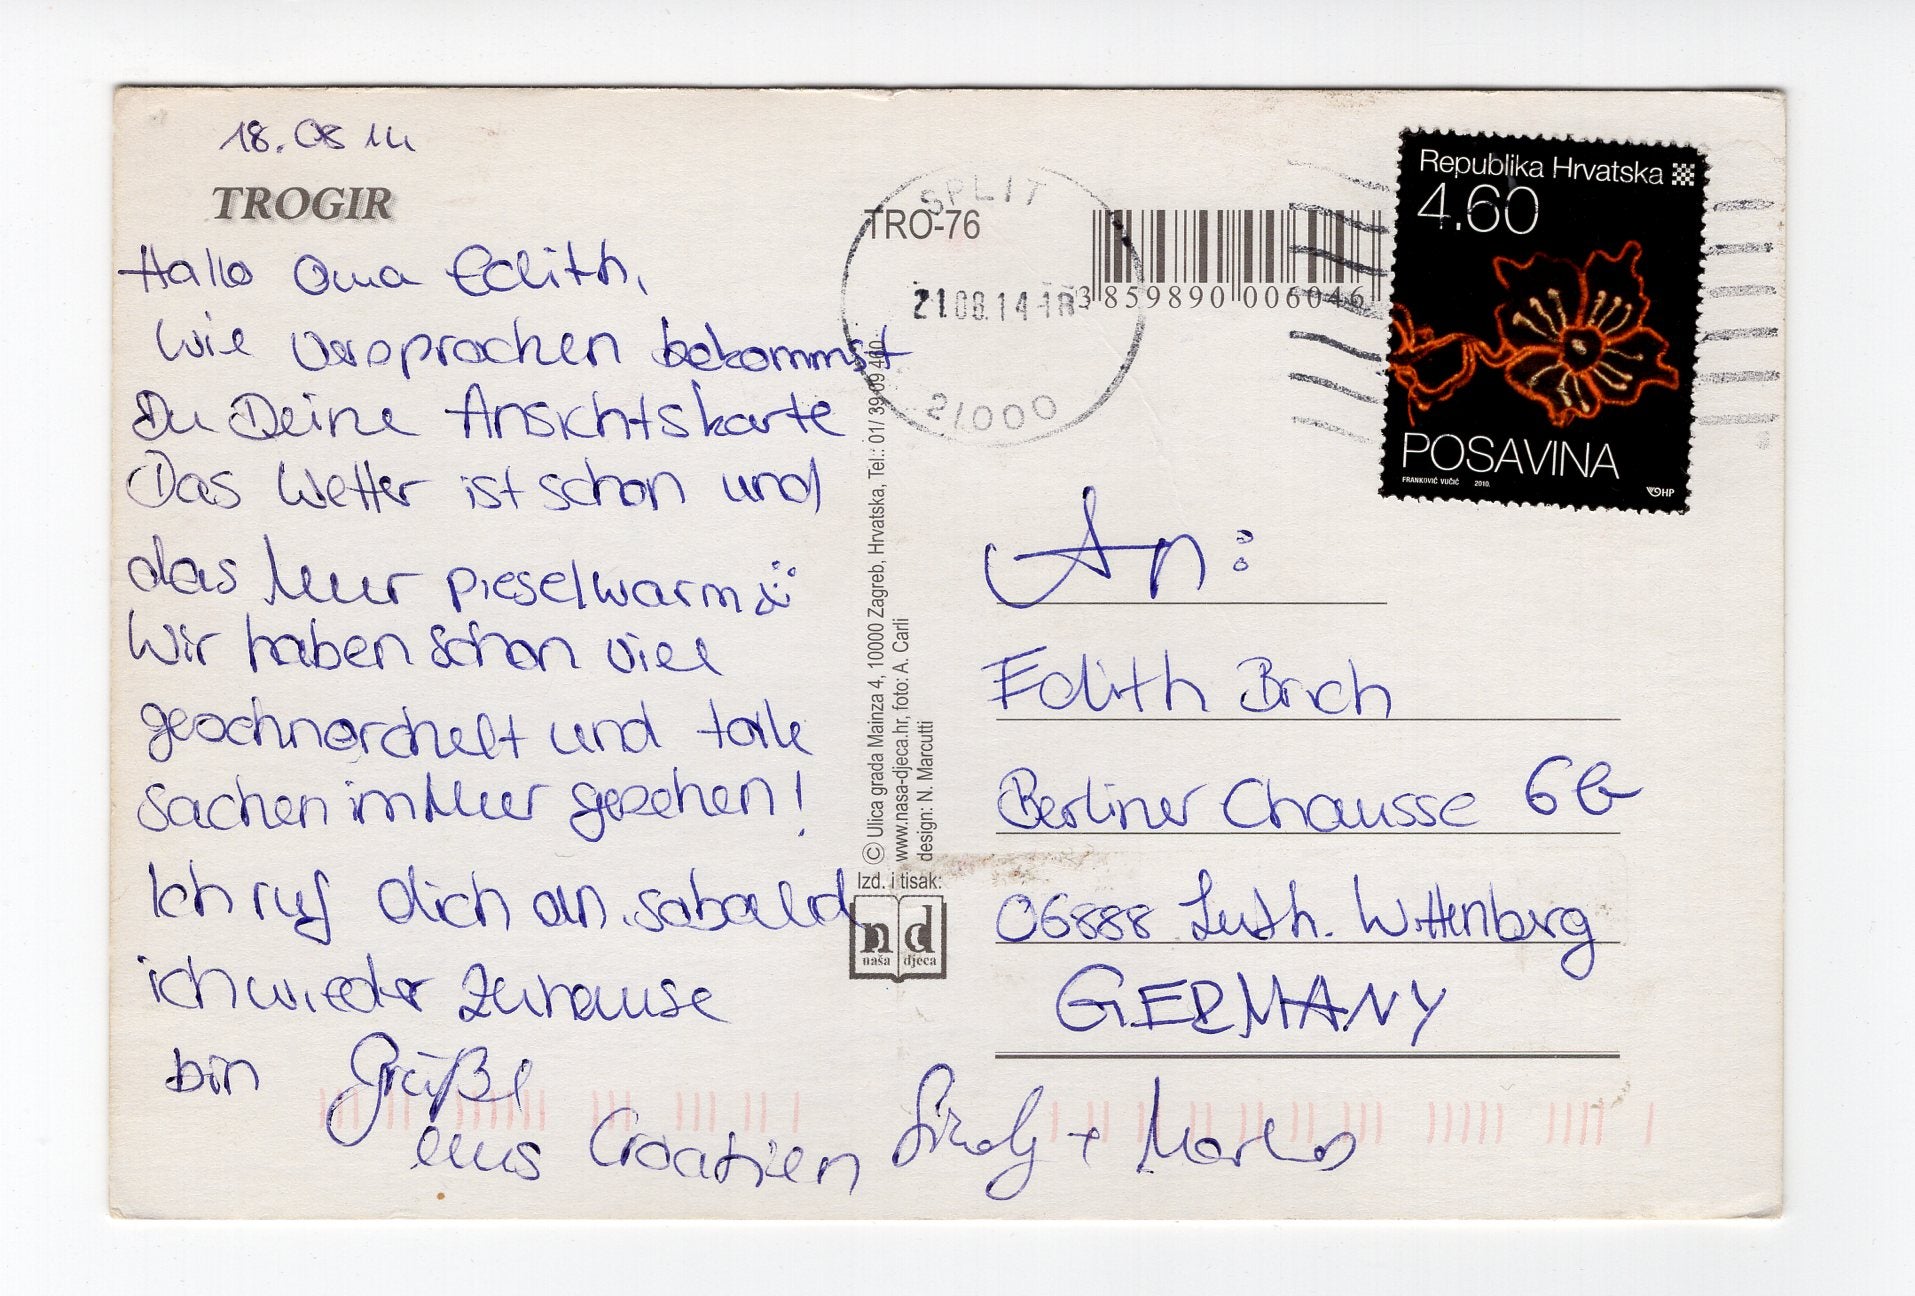 18.08 14
TROGIR
Hallo Oma Edith,
wie versprochen bekommst
Du Deine Ansichtskarte
Das Wetter ist schon und
das Meer pieselwarm
Wir haben schon viel
geschnorchelt und tolle
sachen im Meer gesehen!
Ich ruf dich an. sobald
ich wieder zuhause
bin Grüße
aus Croatien
+
SPLIT
21.08.14-18
21000
TRO-76
3 859890 006046
© Ulica grada Mainza 4, 10000 Zagreb, Hrvatska, Tel.: 01/ 39 09 460
www.nasa-djeca.hr, foto: A. Carli
design: N. Marcutti
Izd. i tisak:
nd
naša djeca
Republika Hrvatska
4.60
POSAVINA
FRANKOVIĆ VUČIĆ 2010.
HP
An:
Edith
Berliner Chausse 6
06888 Luth. Wittenberg
GERMANY